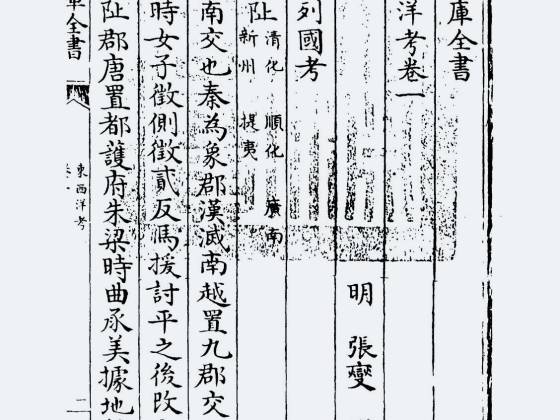 庫全書
洋考卷一
明 張燮
列國考
阯
清化 順化 廣南
新州 提夷
南交也秦為象郡漢滅南越置九郡交
時女子徵側徵貳反馬援討平之後改
阯郡唐置都護府朱梁時曲承美據地
庫全書
東西洋考
卷一
二